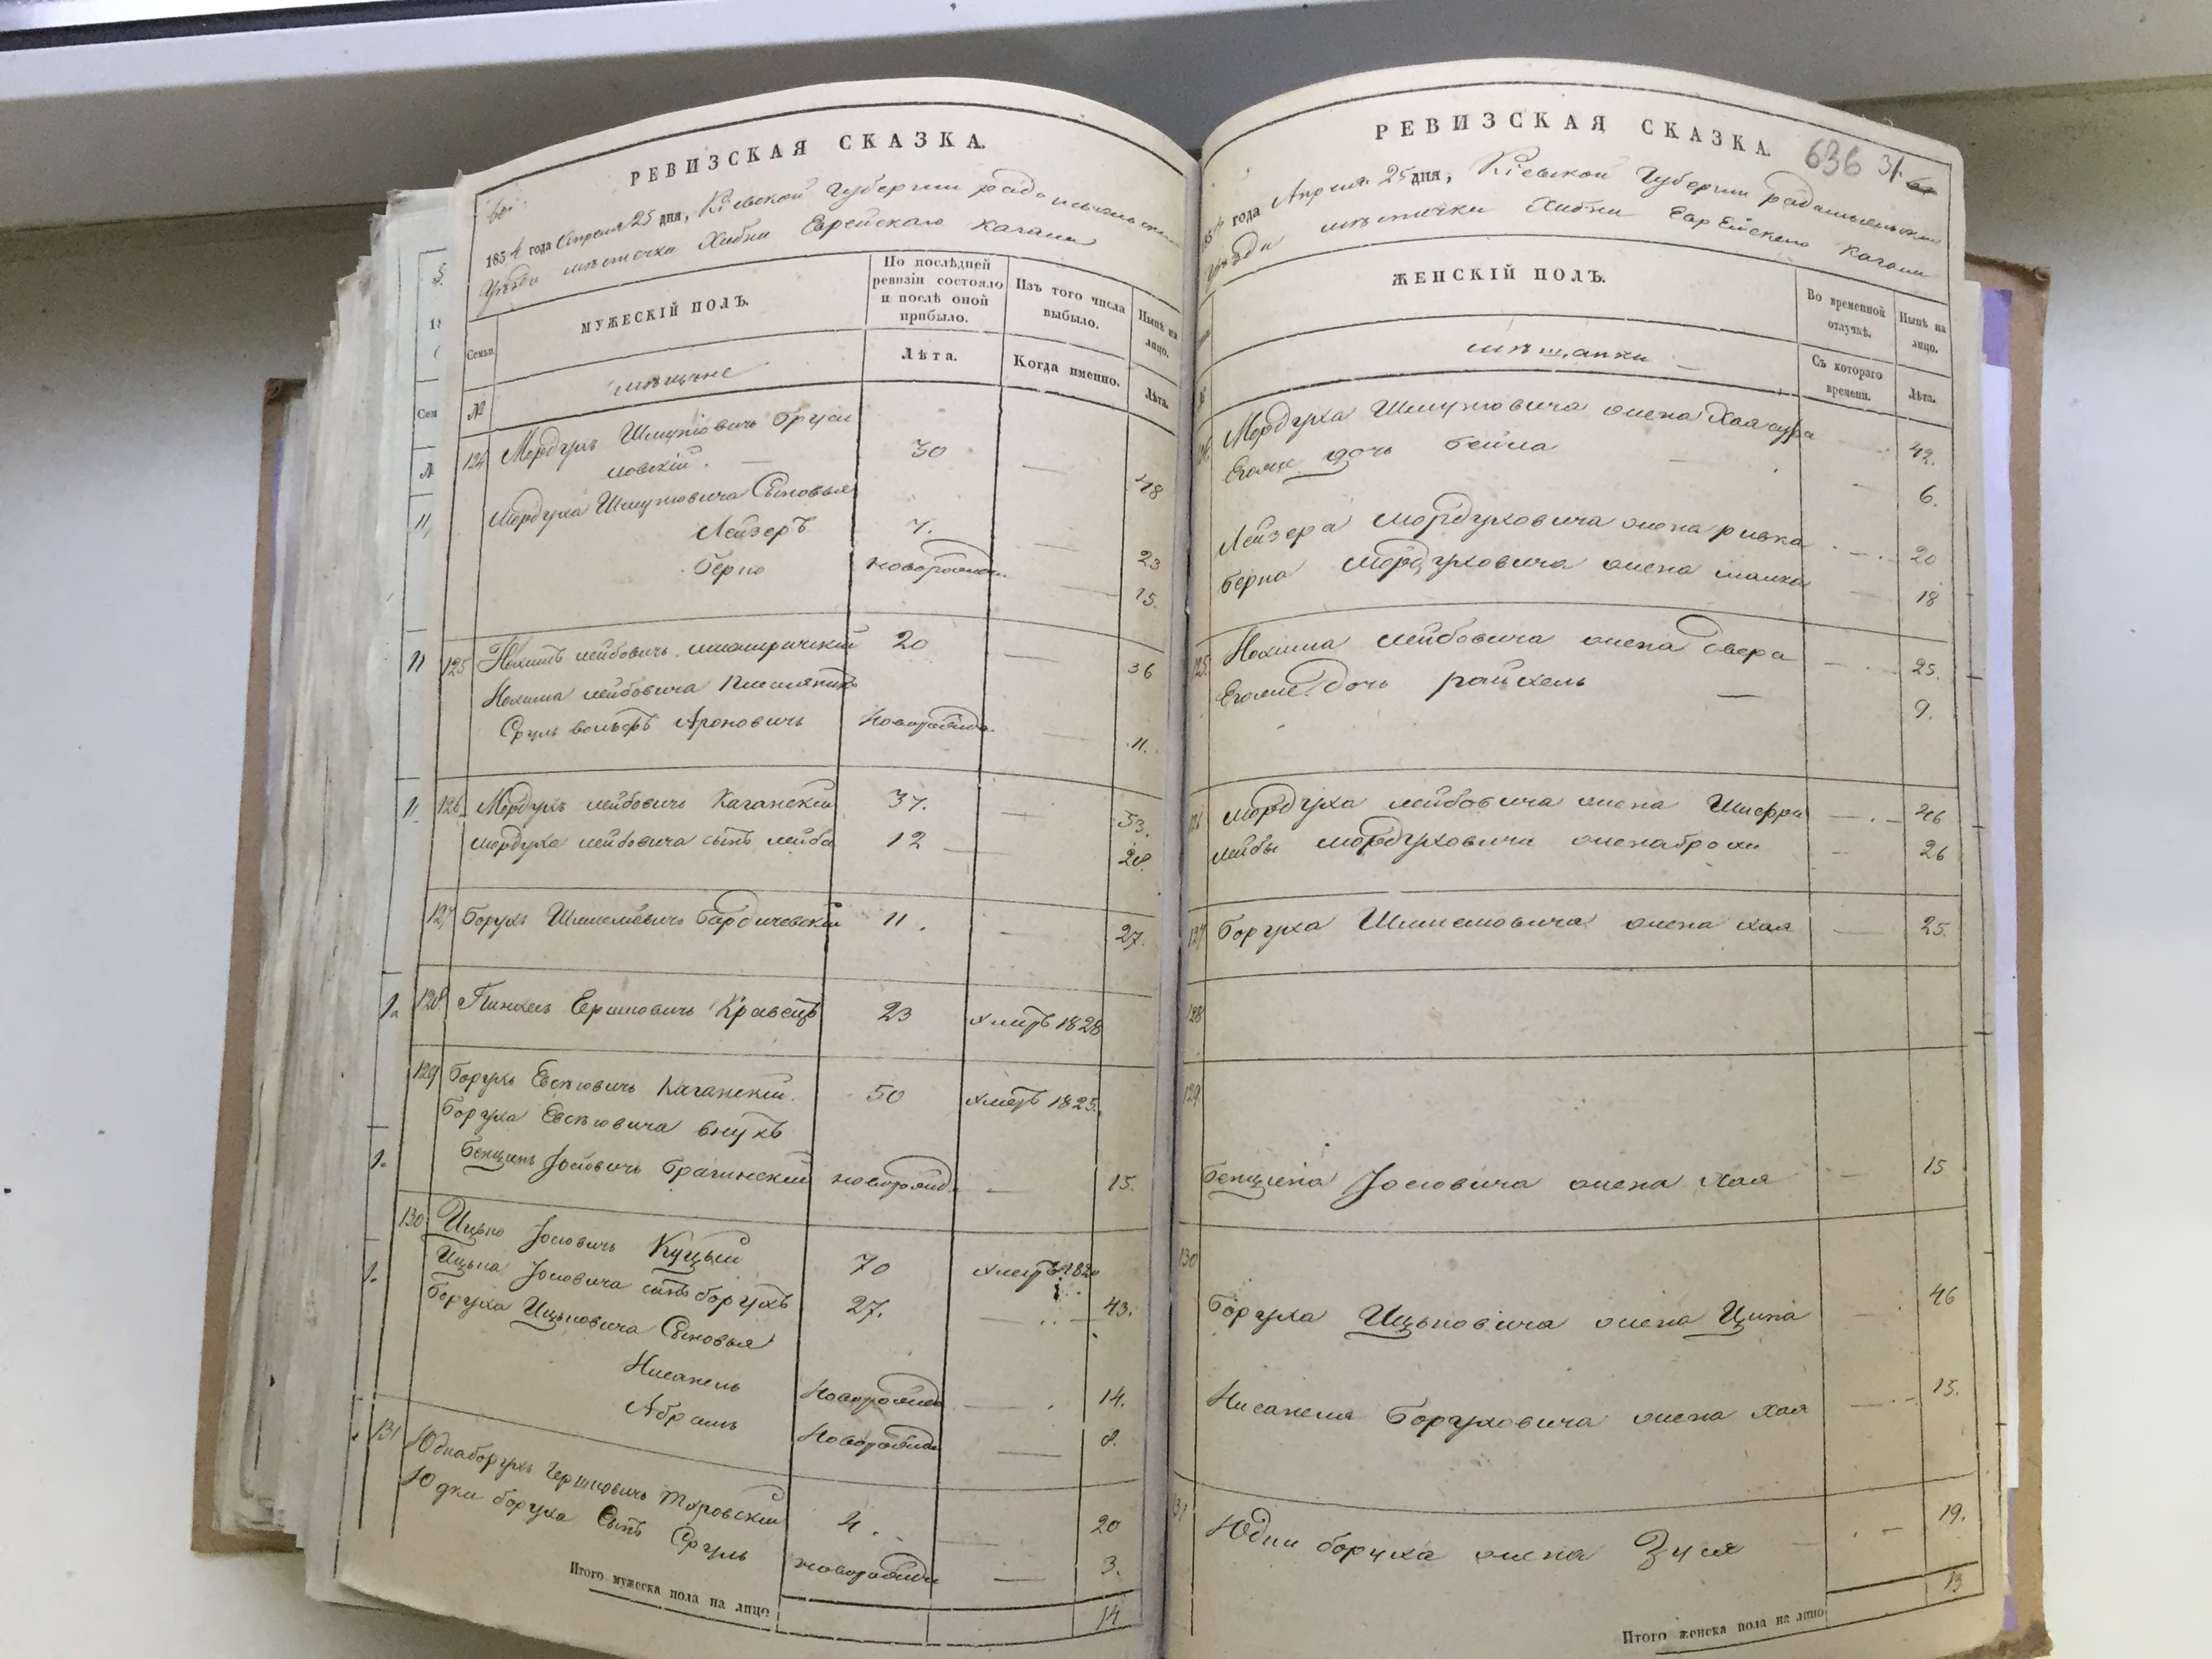 РЕВИЗСКАЯ СКАЗКА.
1854 года Апреля 25 дня, Кіевской Губерніи
Уѣзда мѣстечка Хабни Еврейскаго Кагала
Семьи.
МУЖЕСКІЙ ПОЛЪ.
По послѣдней ревизіи состояло и послѣ оной прибыло.
Изъ того числа выбыло.
Нынѣ на лицо.
№
мѣщане
Лѣта.
Когда именно.
Лѣта.
124 Мордухъ Шмуліовичъ Бруси
ловскій. — 30 — 48
Мордуха Шмуліовича Сыновья
Лейзеръ 7. — 23
Берко новорожден. — 15.
125 Нохимъ Лейбовичъ 20 — 36
Нохима Лейбовича Племянникъ
Сруль Вольфъ Ароновичъ Новорожд. — 11.
126 Мордухъ Лейбовичъ Каганскій 37. — 53.
Мордуха Лейбовича сынъ Лейба 12 — 28.
127 Борухъ Бардичевскій 11. — 27.
128 Пинхасъ Ершковичъ Кравецъ 23 умеръ 1828
129 Борухъ Евсѣовичъ Каганскій. 50 умеръ 1825.
Боруха Евсѣовича внукъ
Бенціенъ Іосіовичъ Брагинскій новорожд. — 15.
130 Ицько Іосіовичъ Куцый 70 умеръ
Ицька Іосіовича сынъ Борухъ 27. — 43.
Боруха Ицьковича Сыновья
Нисанель Новорожден — 14.
Абрамъ Новорожден — 8.
131 Юдка Борухъ Гершковичъ 4. — 20
Юдки Боруха Сынъ Сруль новорожден — 3.
Итого мужеска пола на лицо 14
РЕВИЗСКАЯ СКАЗКА.
636 31
года Апреля 25 дня, Кіевской Губерніи
Уѣзда мѣстечка Хабни Еврейскаго Кагала
ЖЕНСКІЙ ПОЛЪ.
Во временной отлучкѣ.
Нынѣ на лицо.
мѣщанки —
Съ котораго времени.
Лѣта.
Мордуха Шмуліовича жена Хая Сура — 42.
Егоже дочь Бейла — 6.
Лейзера Мордуховича жена Ривка — 20
Берка Мордуховича жена — 18
125. Нохима Лейбовича жена Двера — 25.
Егоже дочь Райхель — 9.
126 Мордуха Лейбовича жена Шифра — 46
Лейбы Мордуховича жена Броха — 26
127 Боруха жена Хая — 25.
128
129
Бенціена Іосіовича жена Хая — 15
130
Боруха Ицьковича жена Ципа — 46
Нисанеля Боруховича жена Хая — 15.
31 Юдки Боруха жена Зуся — 19.
Итого женска пола на лицо 13